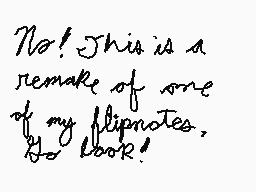 No! This is a
remake of one
of my flipnotes,
Go look!